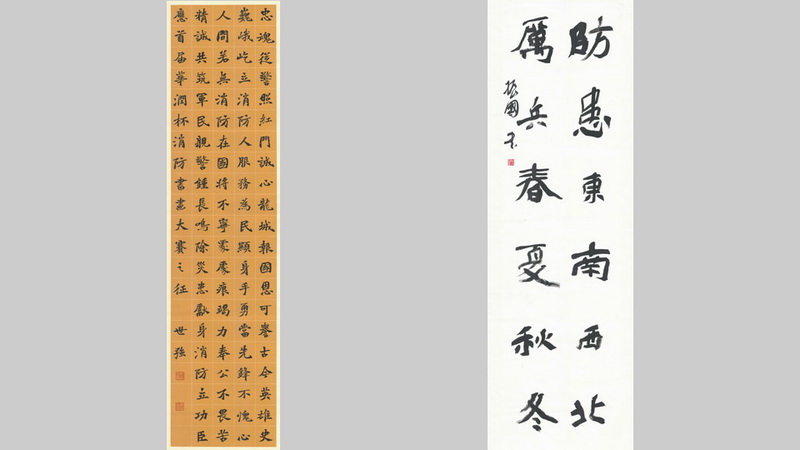 忠魂從警照紅門誠心龍城報國恩可譽古今英雄史
巍峨屹立消防人服務為民顯身手勇當先鋒不愧心
人間若無消防在國將不寧家處痕竭力奉公不畏苦
精誠共筑軍民親警鍾長鳴除災患獻身消防立功臣
應首屆華潤杯消防書畫大賽之征 世強
防患東南西北
厲兵春夏秋冬
振國